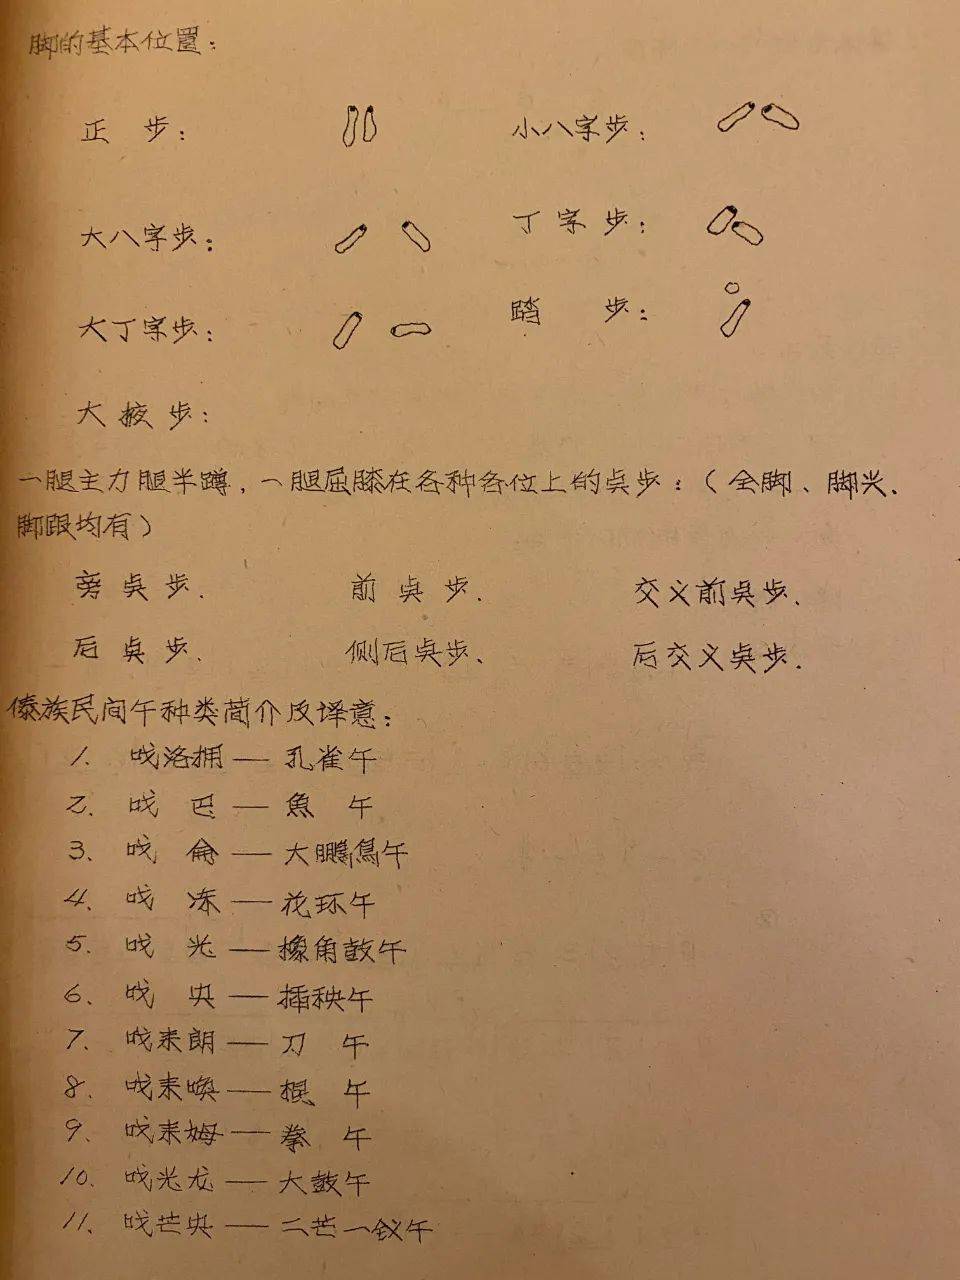 脚的基本位置：
正 步： 小八字步：
大八字步： 丁 字 步：
大丁字步： 踏 步：
大 掖 步：
一腿主力腿半蹲，一腿屈膝在各种各位上的点步：（全脚、脚尖、
脚跟均有）
旁 点 步. 前 点 步. 交叉前点步.
后 点 步. 侧后点步、 后交叉点步.
傣族民间午种类简介及译意：
1. 戛洛拥——孔雀午
2. 戛 巴——魚 午
3. 戛 ——大鵬鳥午
4. 戛 冻——花环午
5. 戛 光——橡角鼓午
6. 戛 央——插秧午
7. 戛耒朗——刀 午
8. 戛耒唤——棍 午
9. 戛耒姆——拳 午
10. 戛光龙——大鼓午
11. 戛芒央——二芒一钗午